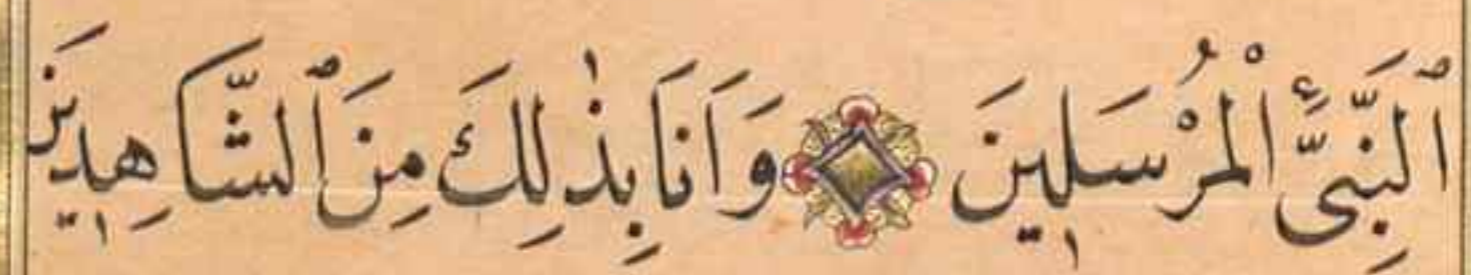 ٱلنَّبِىِّٔ الْمُرْسَلِينَ وَاَنَا بِذٰلِكَ مِنَ ٱلشَّاهِدِينَ